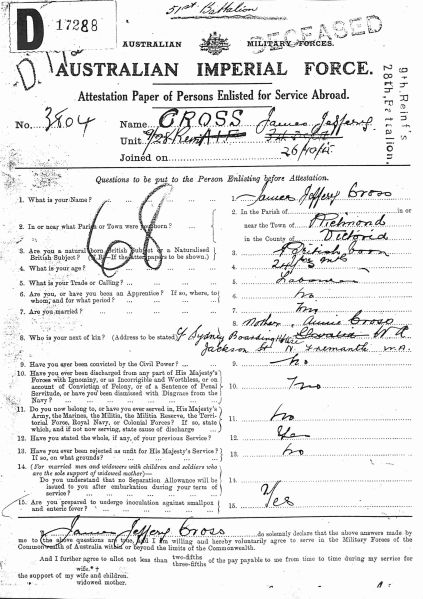 51st Battalion
D 17288
DECEASED
AUSTRALIAN MILITARY FORCES.
AUSTRALIAN IMPERIAL FORCE.
Attestation Paper of Persons Enlisted for Service Abroad.
9th Reint's
28th Battalion.
No. 3804 Name CROSS James Jeffery
Unit 9/28 Rein
Joined on 26/10/15
Questions to be put to the Person Enlisting before Attestation.
68
1. What is your Name? 1. James Jeffery Cross
2. In or near what Parish or Town were you born? 2. In the Parish of in or
near the Town of Richmond
in the County of Victoria
3. Are you a natural born British Subject or a Naturalised
British Subject? (N.B.—If the latter papers to be shown.) 3. British born
4. What is your age? 4. 24
5. What is your Trade or Calling? 5. Labourer
6. Are you, or have you been an Apprentice? If so, where, to
whom, and for what period? 6. No
7. Are you married? 7. No
8. Who is your next of kin? (Address to be stated) 8. Mother, Annie Cross
Sydney Boarding House W A
Jackson St N. Fremantle W.A.
9. Have you ever been convicted by the Civil Power? 9. No
10. Have you ever been discharged from any part of His Majesty's
Forces with Ignominy, or as Incorrigible and Worthless, or on
account of Conviction of Felony, or of a Sentence of Penal
Servitude, or have you been dismissed with Disgrace from the
Navy? 10. No
11. Do you now belong to, or have you ever served in, His Majesty's
Army, the Marines, the Militia, the Militia Reserve, the Territorial
Force, Royal Navy, or Colonial Forces? If so, state
which, and if not now serving, state cause of discharge 11. No
12. Have you stated the whole, if any, of your previous Service? 12. Yes
13. Have you ever been rejected as unfit for His Majesty's Service?
If so, on what grounds? 13. No
14. (For married men and widowers with children and soldiers who
are the sole support of widowed mother)—
Do you understand that no Separation Allowance will be
issued to you after embarkation during your term of
service? 14.
15. Are you prepared to undergo inoculation against smallpox
and enteric fever? 15. Yes
I, James Jeffery Cross do solemnly declare that the above answers made by
me to the above questions are true, and I am willing and hereby voluntarily agree to serve in the Military Forces of the
Commonwealth of Australia within or beyond the limits of the Commonwealth.
And I further agree to allot not less than two-fifths three-fifths of the pay payable to me from time to time during my service for
the support of my wife.*† wife and children. widowed mother.